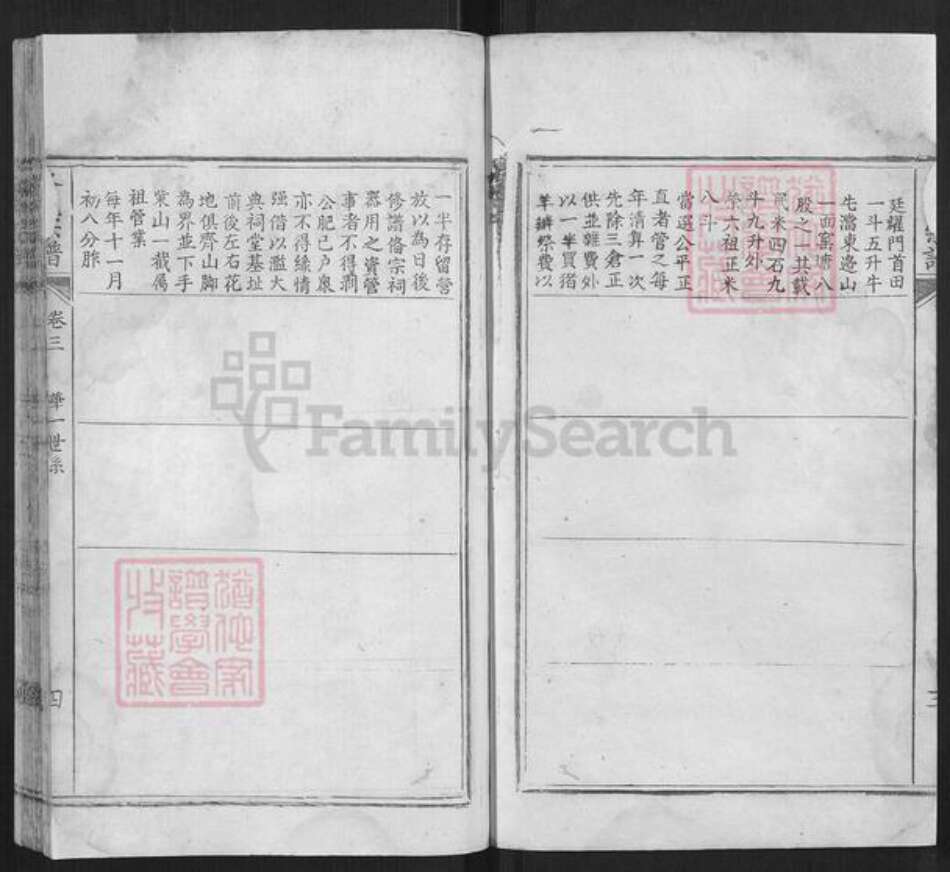 廷耀門首田
一斗五升牛
牛灣東邊山
一面葉塘八
股之一共載
民米四石九
斗九升外
祭六祖正米
八斗
當選公平正
直者管之每
年清算一次
先除三倉正
供並雜費外
以一半買猪
羊辦祭費以
一半存留營
放以為日後
修譜俻宗祠
器用之資管
事者不得剥
公肥已戶衆
亦不得緣情
強借以濫大
典祠堂基址
前後左右花
地俱齊山脚
為界並下手
葉山一截屬
祖管業
每年十一月
初八分胙
宗譜
卷三
一世系
四
三
FamilySearch
猶他家
譜學會
收藏